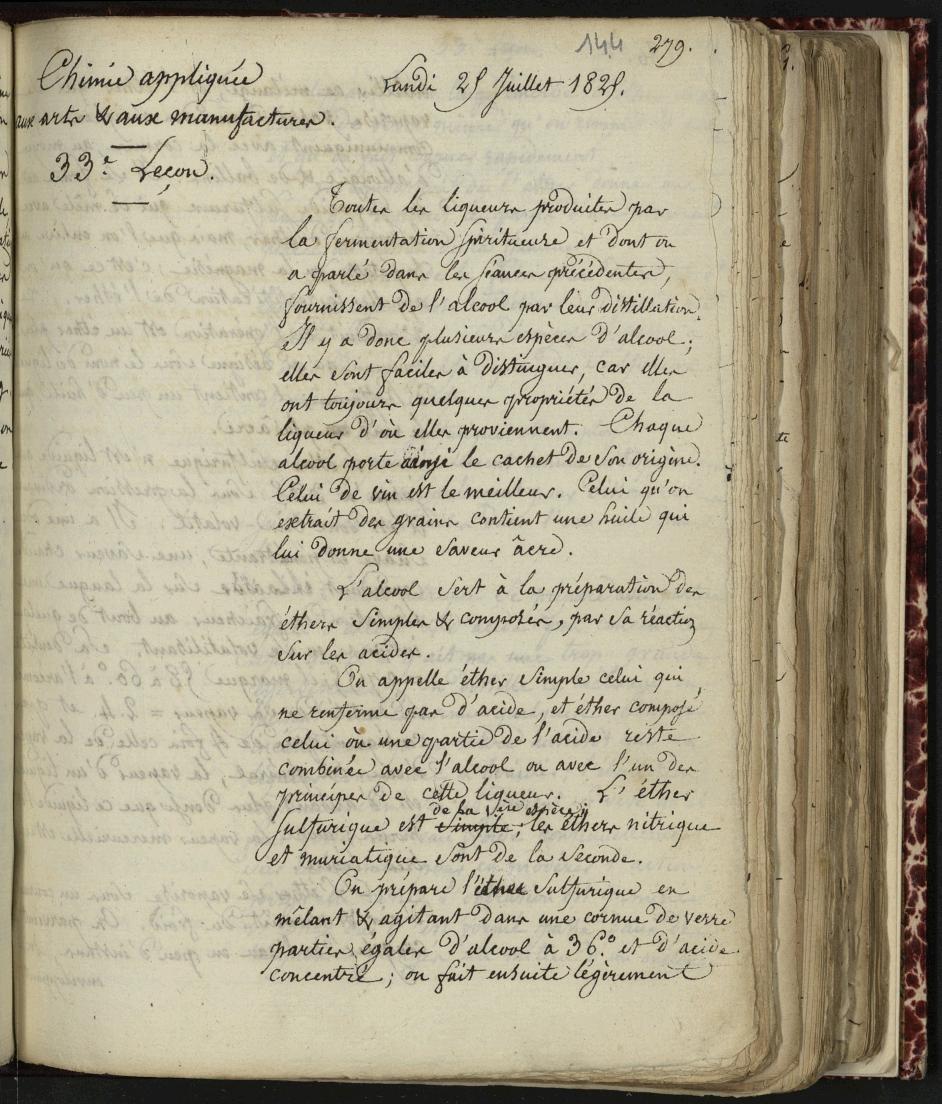 144 279.
Chimie appliquée
aux arts & aux manufactures.
Lundi 25 Juillet 1825.
33.e Leçon.
Toutes les liqueurs produites par
la fermentation spiritueuse et dont on
a parlé dans les séances précédentes,
fournissent de l'alcool par leur distillation.
Il y a donc plusieurs espèces d'alcool ;
elles sont faciles à distinguer, car elles
ont toujours quelques propriétés de la
liqueur d'où elles proviennent. Chaque
alcool porte ainsi le cachet de son origine.
Celui de vin est le meilleur. Celui qu'on
extrait des grains contient une huile qui
lui donne une saveur âcre.
L'alcool sert à la préparation des
éthers simples & composés, par sa réaction
sur les acides.
On appelle éther simple celui qui
ne renferme pas d'acide, et éther composé
celui où une partie de l'acide reste
combinée avec l'alcool ou avec l'un des
principes de cette liqueur. L'éther
de la 1ère espèce ;
sulfurique est simple ; les éthers nitrique
et muriatique sont de la seconde.
On prépare l'éther sulfurique en
mêlant & agitant dans une cornue de verre
parties égales d'alcool à 36.° et d'acide
concentré ; on fait ensuite légèrement